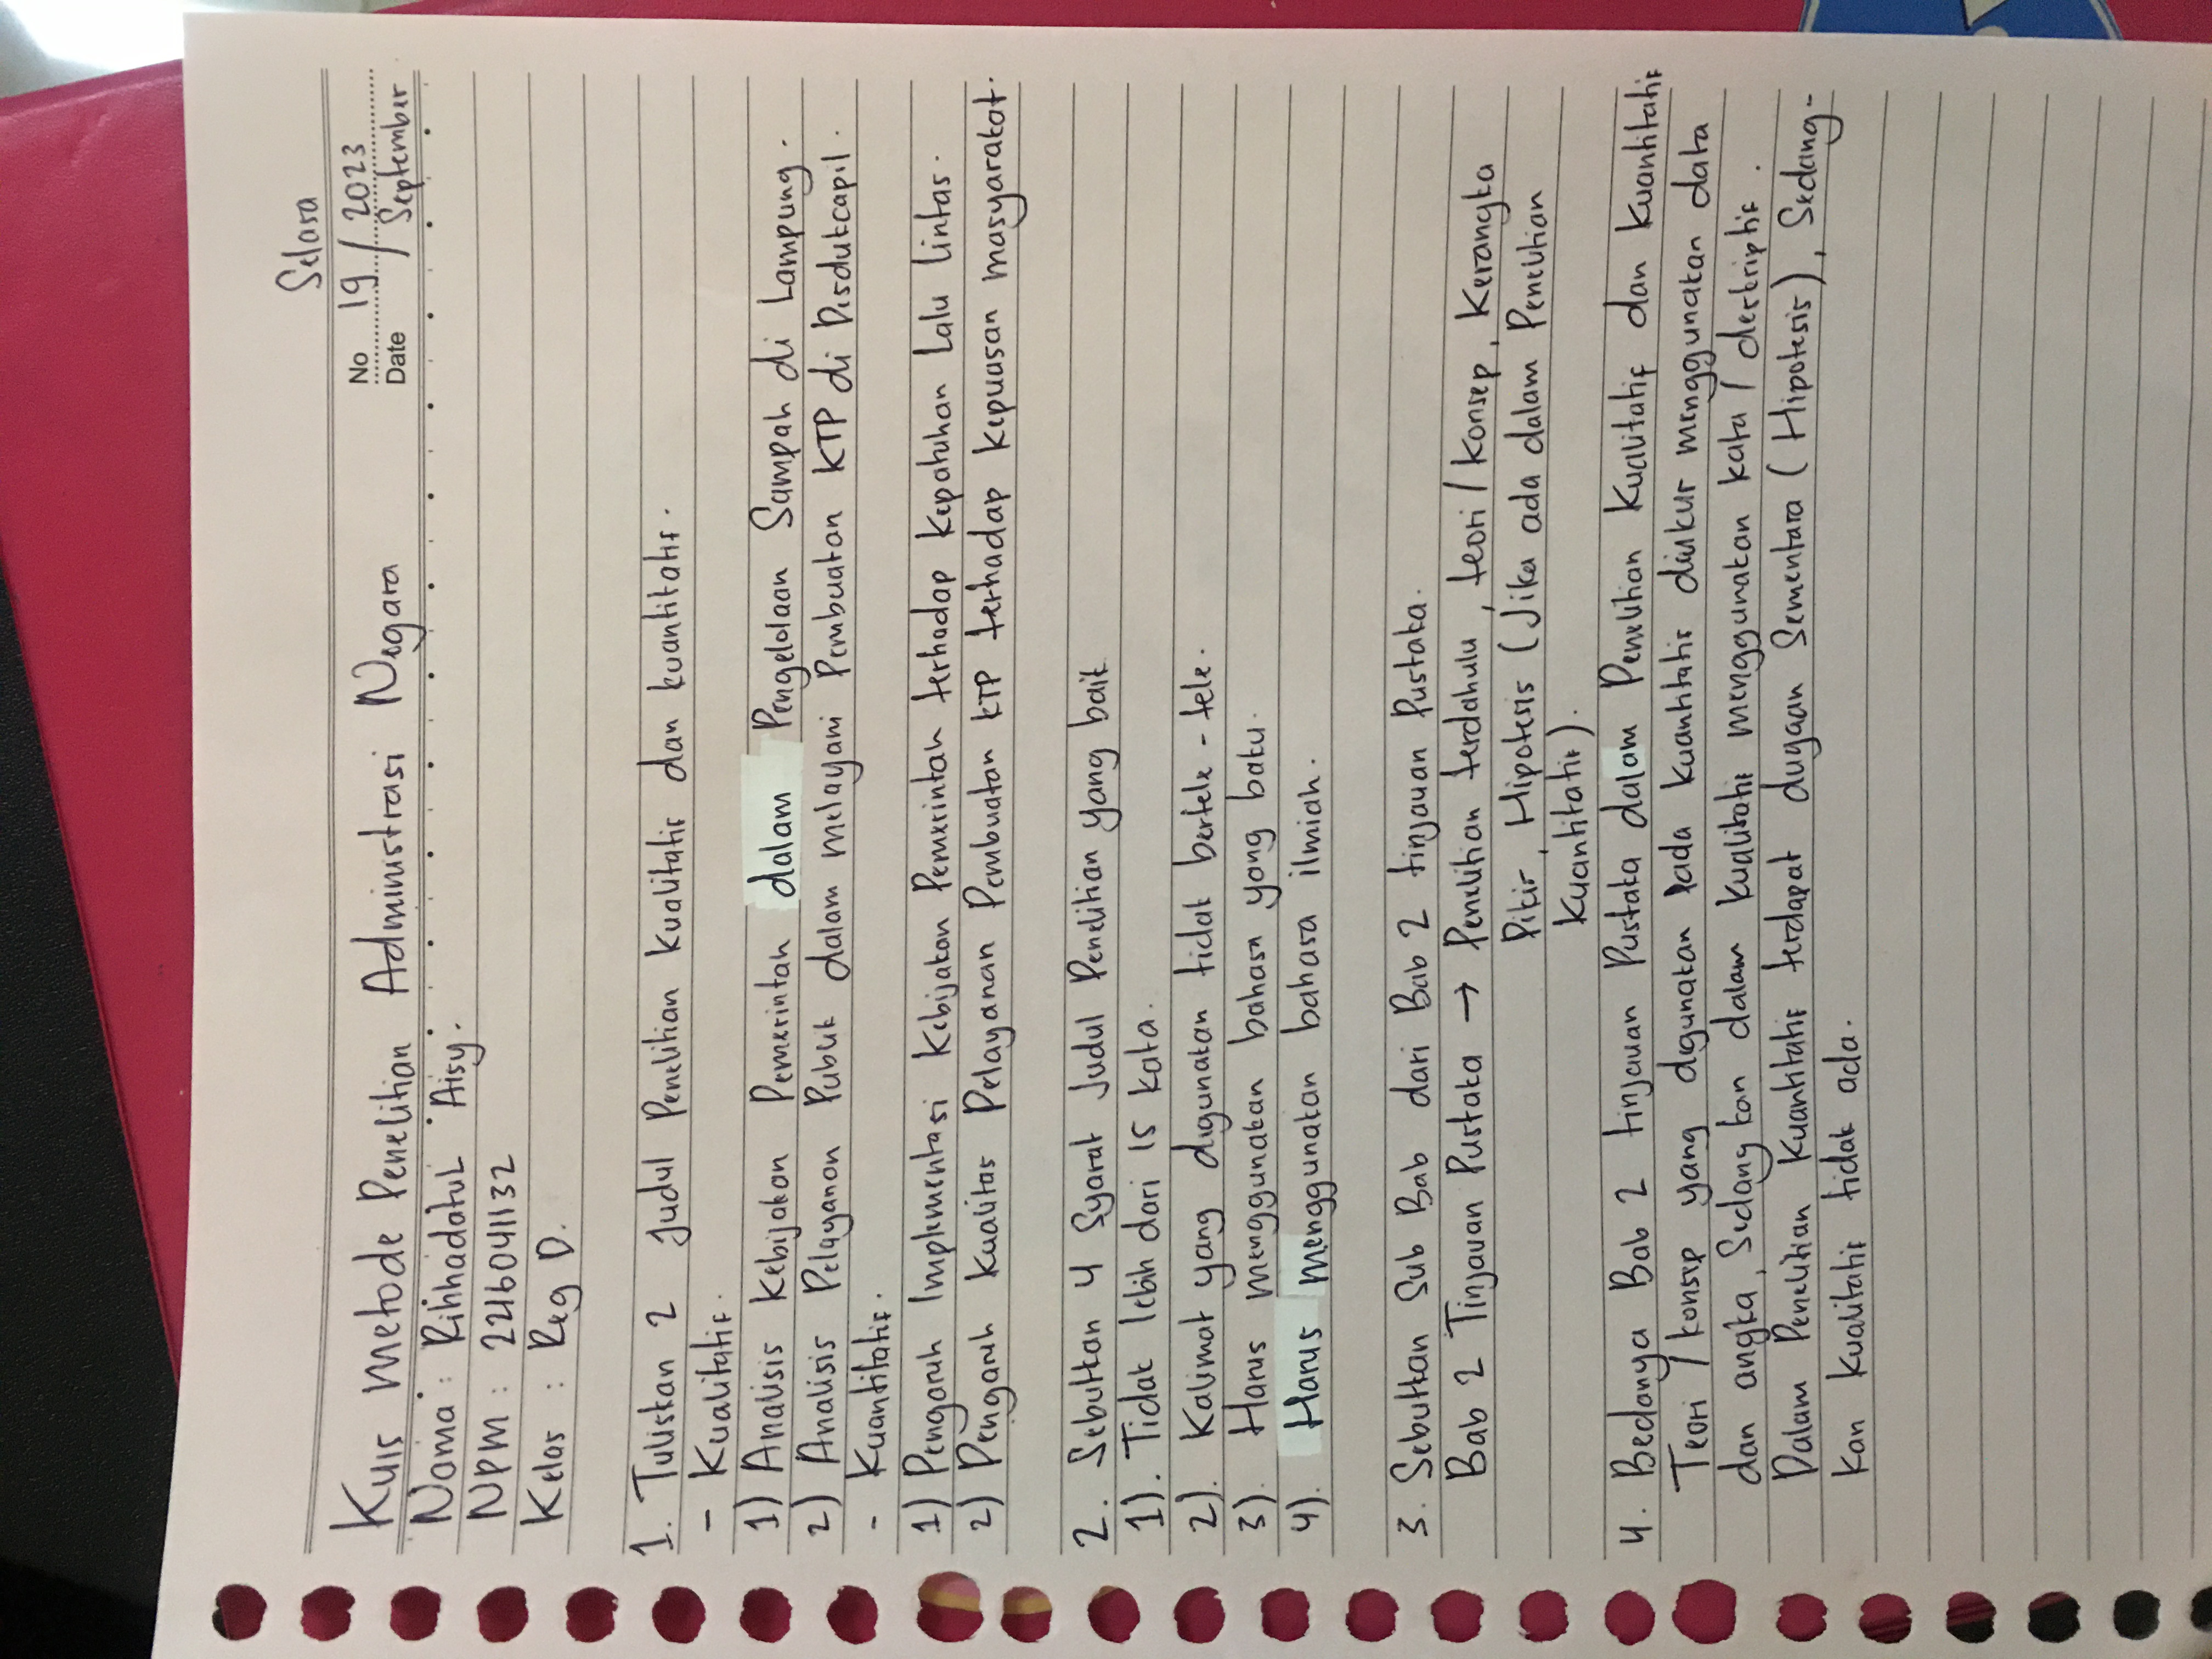 Selasa
No 19 / 2023
Date / September
Kuis Metode Penelitian Administrasi Negara
Nama : Rihhadatul Aisy.
NPM : 2216041132
Kelas : Reg D.
1. Tuliskan 2 Judul Penelitian Kualitatif dan kuantitatif.
- Kualitatif.
1) Analisis Kebijakan Pemerintah dalam Pengelolaan Sampah di Lampung.
2) Analisis Pelayanan Publik dalam melayani Pembuatan KTP di Disdukcapil.
- Kuantitatif.
1) Pengaruh Implementasi Kebijakan Pemerintah terhadap Kepatuhan Lalu Lintas.
2) Pengaruh Kualitas Pelayanan Pembuatan KTP terhadap Kepuasan masyarakat.
2. Sebutkan 4 Syarat Judul Penelitian yang baik
1). Tidak lebih dari 15 kata.
2). Kalimat yang digunakan tidak bertele-tele.
3). Harus menggunakan bahasa yang baku.
4). Harus menggunakan bahasa ilmiah.
3. Sebutkan Sub Bab dari Bab 2 tinjauan Pustaka.
Bab 2 Tinjauan Pustaka → Penelitian terdahulu, teori / konsep, Kerangka
Pikir, Hipotesis (Jika ada dalam Penelitian
Kuantitatif).
4. Bedanya Bab 2 tinjauan Pustaka dalam Penelitian Kualitatif dan Kuantitatif
Teori / konsep yang digunakan pada kuantitatif diukur menggunakan data
dan angka, Sedangkan dalam kualitatif menggunakan kata / deskriptif.
Dalam Penelitian Kuantitatif terdapat dugaan Sementara (Hipotesis), Sedang-
kan Kualitatif tidak ada.